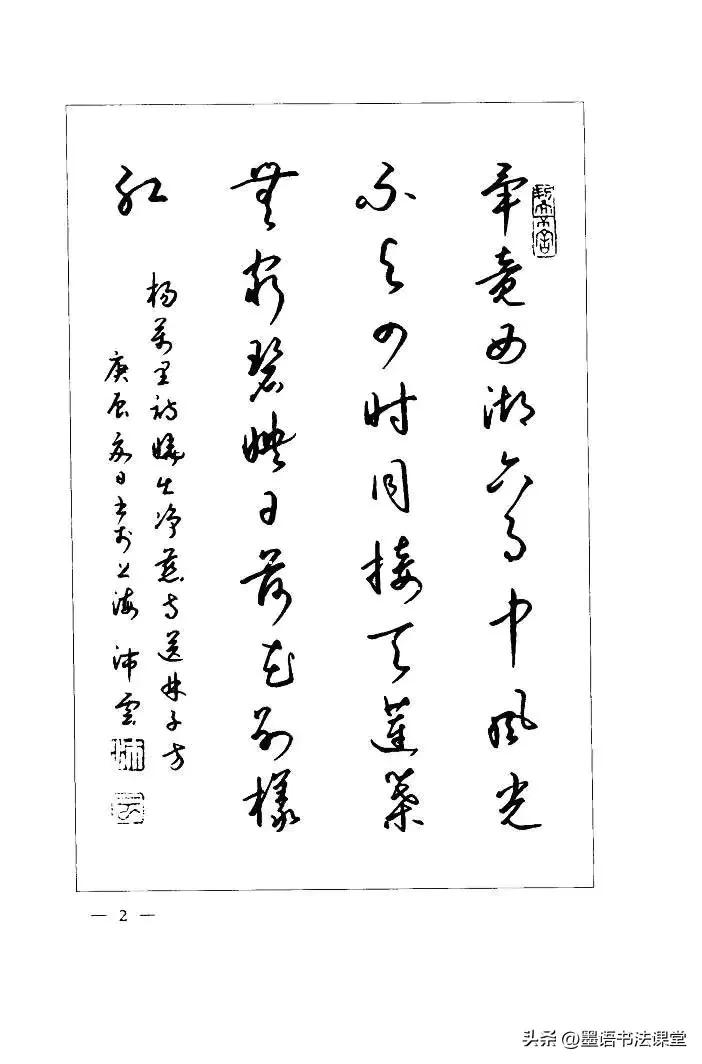 畢竟西湖六月中風光
不与四时同接天蓮葉
無穷碧映日荷花别樣
红
杨萬里诗晓出净慈寺送林子方
庚辰夏日书於上海 沛雲
— 2 —
头条 @墨语书法课堂